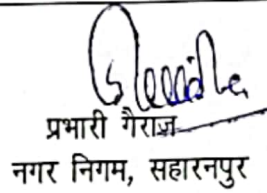 प्रभारी गैराज
नगर निगम, सहारनपुर